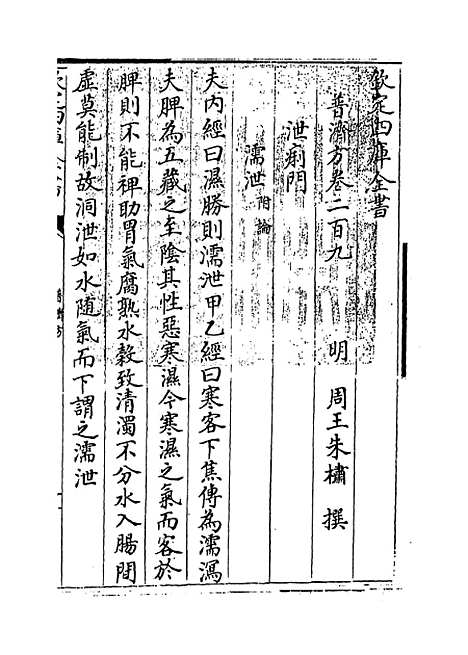 欽定四庫全書
普濟方卷二百九
明 周王朱橚 撰
泄痢門
濡泄附論
夫內經曰濕勝則濡泄甲乙經曰寒客下焦傳為濡瀉
夫脾為五藏之至陰其性惡寒濕今寒濕之氣而客於
脾則不能裨助胃氣腐熟水穀致清濁不分水入腸間
虛莫能制故洞泄如水随氣而下謂之濡泄